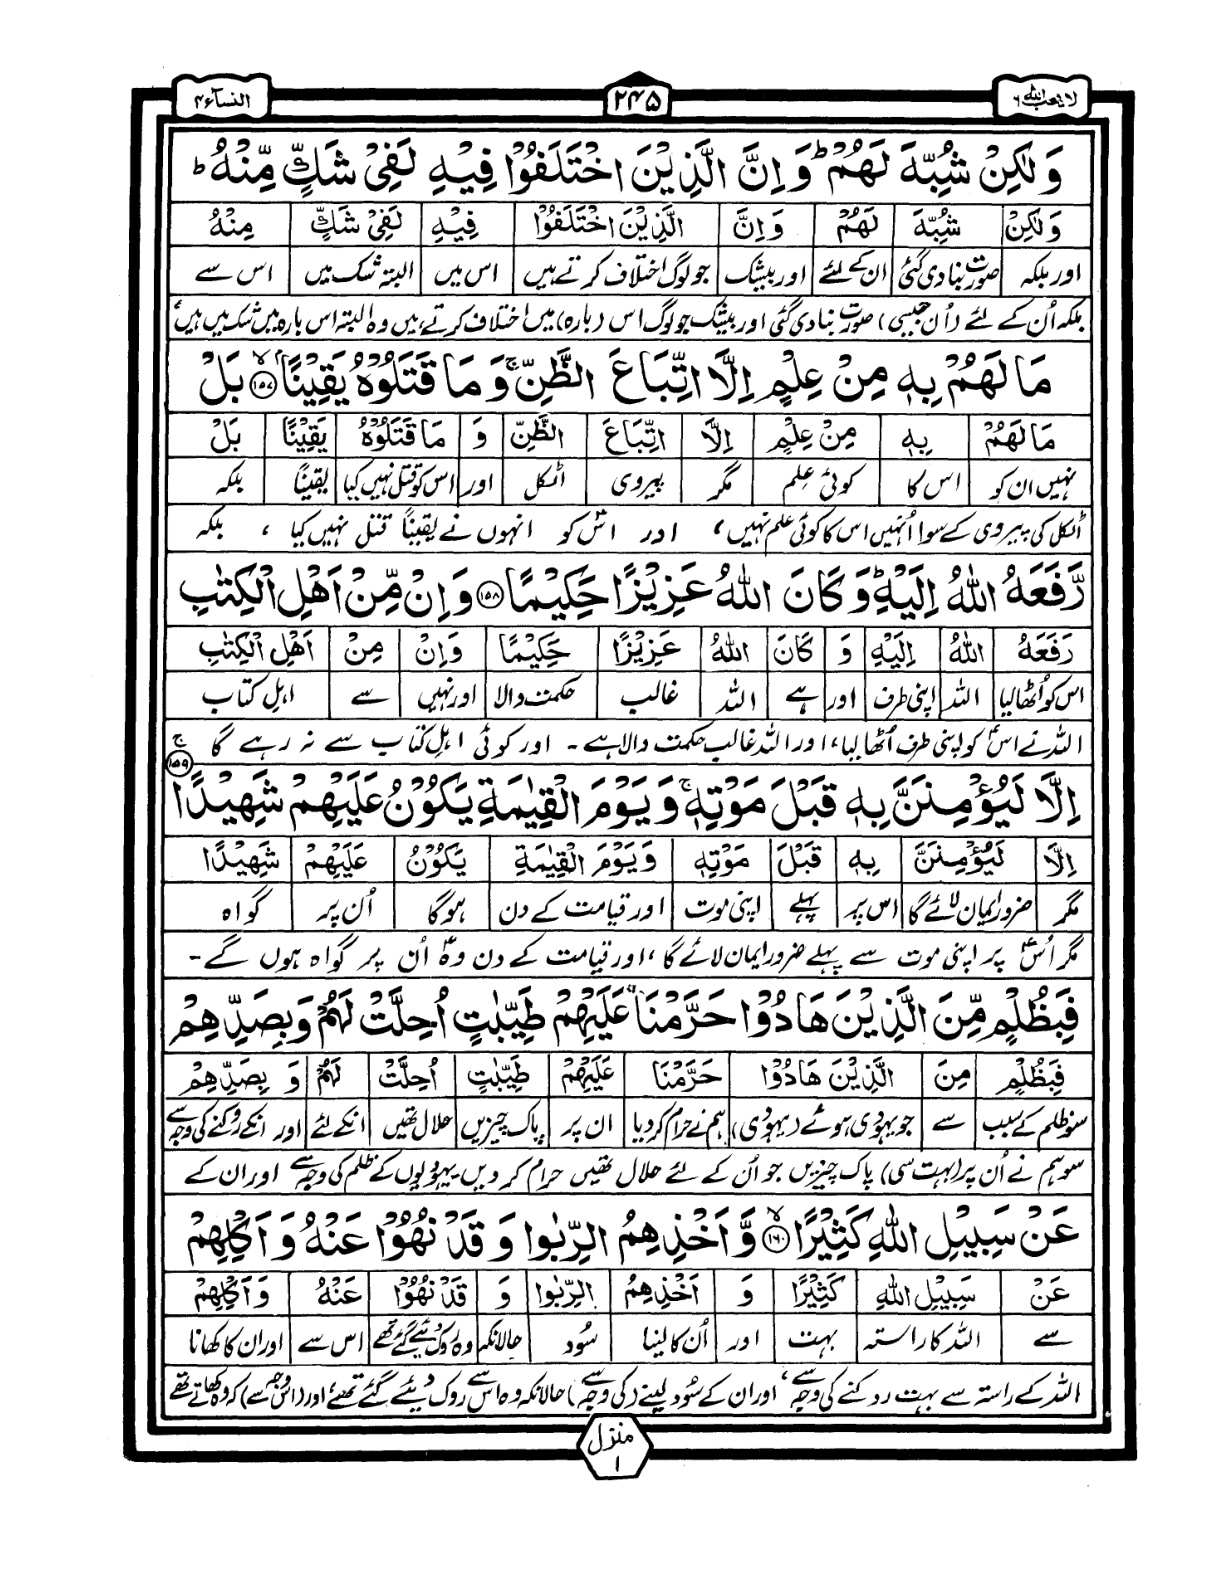 لا یحب اللہ ۶
۲۴۵
النسآء ۴
وَلٰكِنْ شُبِّهَ لَهُمْ ؕ وَاِنَّ الَّذِيْنَ اخْتَلَفُوْا فِيْهِ لَفِيْ شَكٍّ مِّنْهُ ؕ
وَلٰكِنْ شُبِّهَ لَهُمْ وَاِنَّ الَّذِيْنَ اخْتَلَفُوْا فِيْهِ لَفِيْ شَكٍّ مِنْهُ
اور بلکہ صورت بنا دی گئی ان کے لئے اور بیشک جو لوگ اختلاف کرتے ہیں اس میں البتہ شک میں اس سے
بلکہ اُن کے لئے (اُن جیسی) صورت بنا دی گئی اور بیشک جو لوگ اس (بارہ) میں اختلاف کرتے ہیں وہ البتہ اس بارہ میں شک میں ہیں،
مَا لَهُمْ بِهٖ مِنْ عِلْمٍ اِلَّا اتِّبَاعَ الظَّنِّ ۚ وَمَا قَتَلُوْهُ يَقِيْنًۢا ۙ‏﴿۱۵۷﴾ بَلْ
مَا لَهُمْ بِهٖ مِنْ عِلْمٍ اِلَّا اتِّبَاعَ الظَّنِّ وَ مَا قَتَلُوْهُ يَقِيْنًا بَلْ
نہیں ان کو اس کا کوئی علم مگر پیروی اٹکل اور اس کو قتل نہیں کیا یقیناً بلکہ
اٹکل کی پیروی کے سوا اُنہیں اس کا کوئی علم نہیں، اور اسؑ کو انہوں نے یقیناً قتل نہیں کیا ، بلکہ
رَّفَعَهُ اللّٰهُ اِلَيْهِ ؕ وَكَانَ اللّٰهُ عَزِيْزًا حَكِيْمًا ﴿۱۵۸﴾ وَاِنْ مِّنْ اَهْلِ الْكِتٰبِ
رَفَعَهُ اللّٰهُ اِلَيْهِ وَ كَانَ اللّٰهُ عَزِيْزًا حَكِيْمًا وَاِنْ مِنْ اَهْلِ الْكِتٰبِ
اس کو اُٹھا لیا اللہ اپنی طرف اور ہے اللہ غالب حکمت والا اور نہیں سے اہلِ کتاب
اللہ نے اسؑ کو اپنی طرف اُٹھا لیا، اور اللہ غالب حکمت والا ہے ۔ اور کوئی اہلِ کتاب سے نہ رہے گا
اِلَّا لَيُؤْمِنَنَّ بِهٖ قَبْلَ مَوْتِهٖ ۚ وَيَوْمَ الْقِيٰمَةِ يَكُوْنُ عَلَيْهِمْ شَهِيْدًا ۚ ﴿۱۵۹﴾
اِلَّا لَيُؤْمِنَنَّ بِهٖ قَبْلَ مَوْتِهٖ وَيَوْمَ الْقِيٰمَةِ يَكُوْنُ عَلَيْهِمْ شَهِيْدًا
مگر ضرور ایمان لائے گا اس پر پہلے اپنی موت اور قیامت کے دن ہوگا اُن پر گواہ
مگر اُسؑ پر اپنی موت سے پہلے ضرور ایمان لائے گا، اور قیامت کے دن وہؑ اُن پر گواہ ہوں گے ۔
فَبِظُلْمٍ مِّنَ الَّذِيْنَ هَادُوْا حَرَّمْنَا عَلَيْهِمْ طَيِّبٰتٍ اُحِلَّتْ لَهُمْ وَبِصَدِّهِمْ
فَبِظُلْمٍ مِنَ الَّذِيْنَ هَادُوْا حَرَّمْنَا عَلَيْهِمْ طَيِّبٰتٍ اُحِلَّتْ لَهُمْ وَ بِصَدِّهِمْ
سو ظلم کے سبب سے جو یہودی ہوئے (یہودی) ہم نے حرام کر دیا ان پر پاک چیزیں حلال تھیں انکے لئے اور انکے روکنے کی وجہ سے
سو ہم نے اُن پر (بہت سی) پاک چیزیں جو اُن کے لئے حلال تھیں حرام کر دیں یہودیوں کے ظلم کی وجہ سے اور ان کے
عَنْ سَبِيْلِ اللّٰهِ كَثِيْرًا ۙ ﴿۱۶۰﴾ وَّاَخْذِهِمُ الرِّبٰوا وَقَدْ نُهُوْا عَنْهُ وَاَكْلِهِمْ
عَنْ سَبِيْلِ اللّٰهِ كَثِيْرًا وَ اَخْذِهِمُ الرِّبٰوا وَ قَدْ نُهُوْا عَنْهُ وَاَكْلِهِمْ
سے اللہ کا راستہ بہت اور اُن کا لینا سُود حالانکہ وہ روک دیئے گئے تھے اس سے اور ان کا کھانا
اللہ کے راستہ سے بہت روکنے کی وجہ سے، اور ان کے سُود لینے (کی وجہ سے) حالانکہ وہ اس سے روک دیئے گئے تھے، اور (اس وجہ سے) کہ وہ کھاتے تھے
منزل
۱